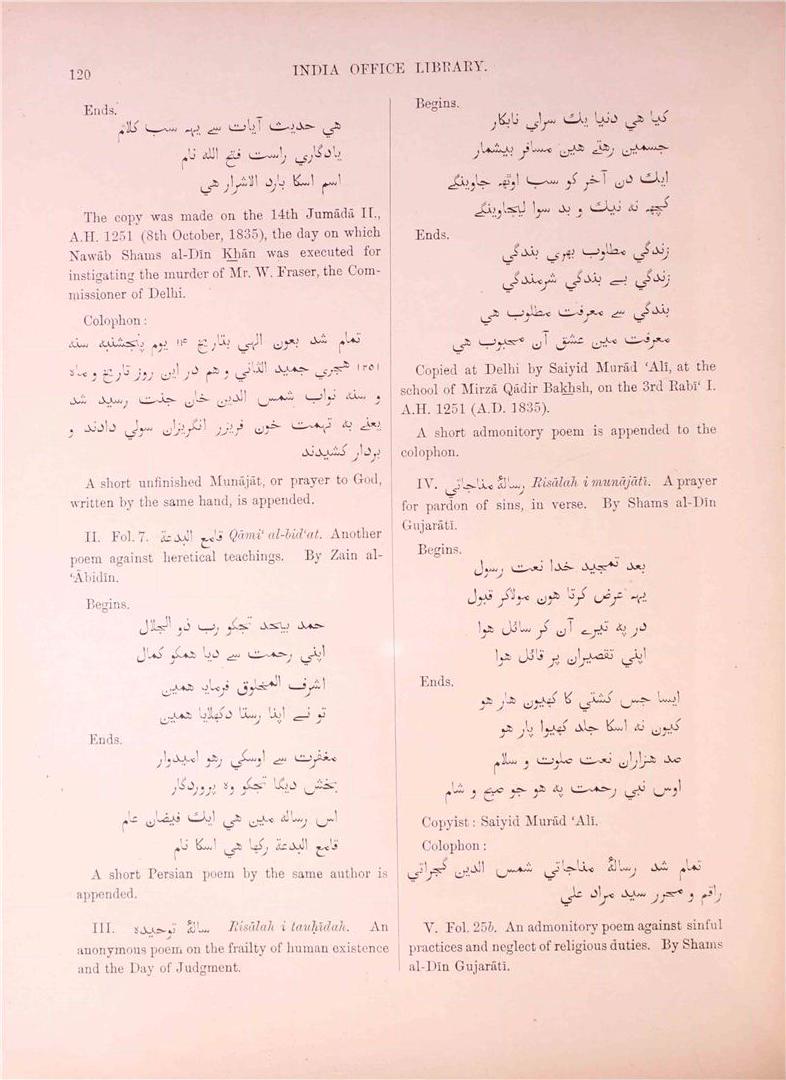 120
INDIA OFFICE LIBRARY.
Ends.
هي حديث آيات سے يهہ سب كلام
يادگاري راست فتح الله نام
اسم اسكا بارد الاشرار هي
The copy was made on the 14th Jumādā II.,
A.H. 1251 (8th October, 1835), the day on which
Nawāb Shams al-Dīn Khān was executed for
instigating the murder of Mr. W. Fraser, the Com-
missioner of Delhi.
Colophon :
تمام شد بعون الهي بتاريخ ۱۴ يوم پنجشنبه سنه
۱۲۵۱ هجري جميد الثاني و هم در اين روز تاريخ و ماه
و سنه نواب شمس الدين خان جنت رسيد شد
يعنے به تهمت خون فريزر انگريزان سولي دادند و
بردار كشيدند
A short unfinished Munājāt, or prayer to God,
written by the same hand, is appended.
II. Fol. 7. قامع البدعة Qāmi‘ al-bid‘at. Another
poem against heretical teachings. By Zain al-
‘Ābidīn.
Begins.
حمد بيحد تجكو رب ذو الجلال
اپني رحمت سے ديا همكو كمال
اشرف المخلوق فرمايه همين
تو نے اپنا رستا دكهلايا همين
Ends.
مغفرت سے اوسكي رهو اميدوار
بخش ديگا تجكو وه پروردگار
اس رساله مين هي ايك فيضان عام
قامع البدعة ركها هي اسكا نام
A short Persian poem by the same author is
appended.
III. سالۀ توحيده Risālah i tauḥīdah. An
anonymous poem on the frailty of human existence
and the Day of Judgment.
Begins.
كيا هي دنيا يك سراي نابكار
جسمين رهتے هين مسافر بيشمار
ايك دن آخر كو سب اوٹهہ جاوينگے
كچهہ نه نيك و بد سوا ليجاوينگے
Ends.
زندگي مطلوب بهري بندگي
زندگي بے بندگي شرمندگي
بندگي سے معرفت مطلوب هي
معرفت مين عشق آن محبوب هي
Copied at Delhi by Saiyid Murād ‘Alī, at the
school of Mirzā Qādir Bakhsh, on the 3rd Rabī‘ I.
A.H. 1251 (A.D. 1835).
A short admonitory poem is appended to the
colophon.
IV. رسالۀ مناجاتي Risālah i munājātī. A prayer
for pardon of sins, in verse. By Shams al-Dīn
Gujarātī.
Begins.
بعد تمجيد خدا نعت رسول
يهہ عرض كرتا هون مولاكر قبول
در په تيرے آن كر سائل هوا
اپني تقصيران پر قائل هوا
Ends.
ايسا جس كشتي كا كهيون هار هو
كيون نه اسكا جلد كهيوا پار هو
صد هزاران نعت صلوت و سلام
اوس نبي رحمت په هو جو صبح و شام
Copyist : Saiyid Murād ‘Alī.
Colophon :
تمام شد رسالۀ مناجاتي شمس الدين گجراتي
راقم و محرر سيد مراد علي
V. Fol. 25b. An admonitory poem against sinful
practices and neglect of religious duties. By Shams
al-Dīn Gujarātī.